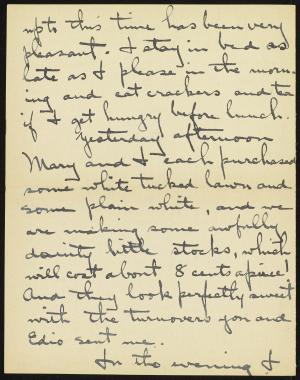 up to this time has been very
pleasant. I stay in bed as
late as I please in the morn-
ing and eat crackers and tea
if I get hungry before lunch.
Yesterday afternoon
Mary and I each purchased
some white tucked lawn and
some plain white, and we
are making some awfully
dainty little stocks, which
will cost about 8 cents apiece!
And they look perfectly sweet
with the turnovers you and
Edio sent me.
In the evening I